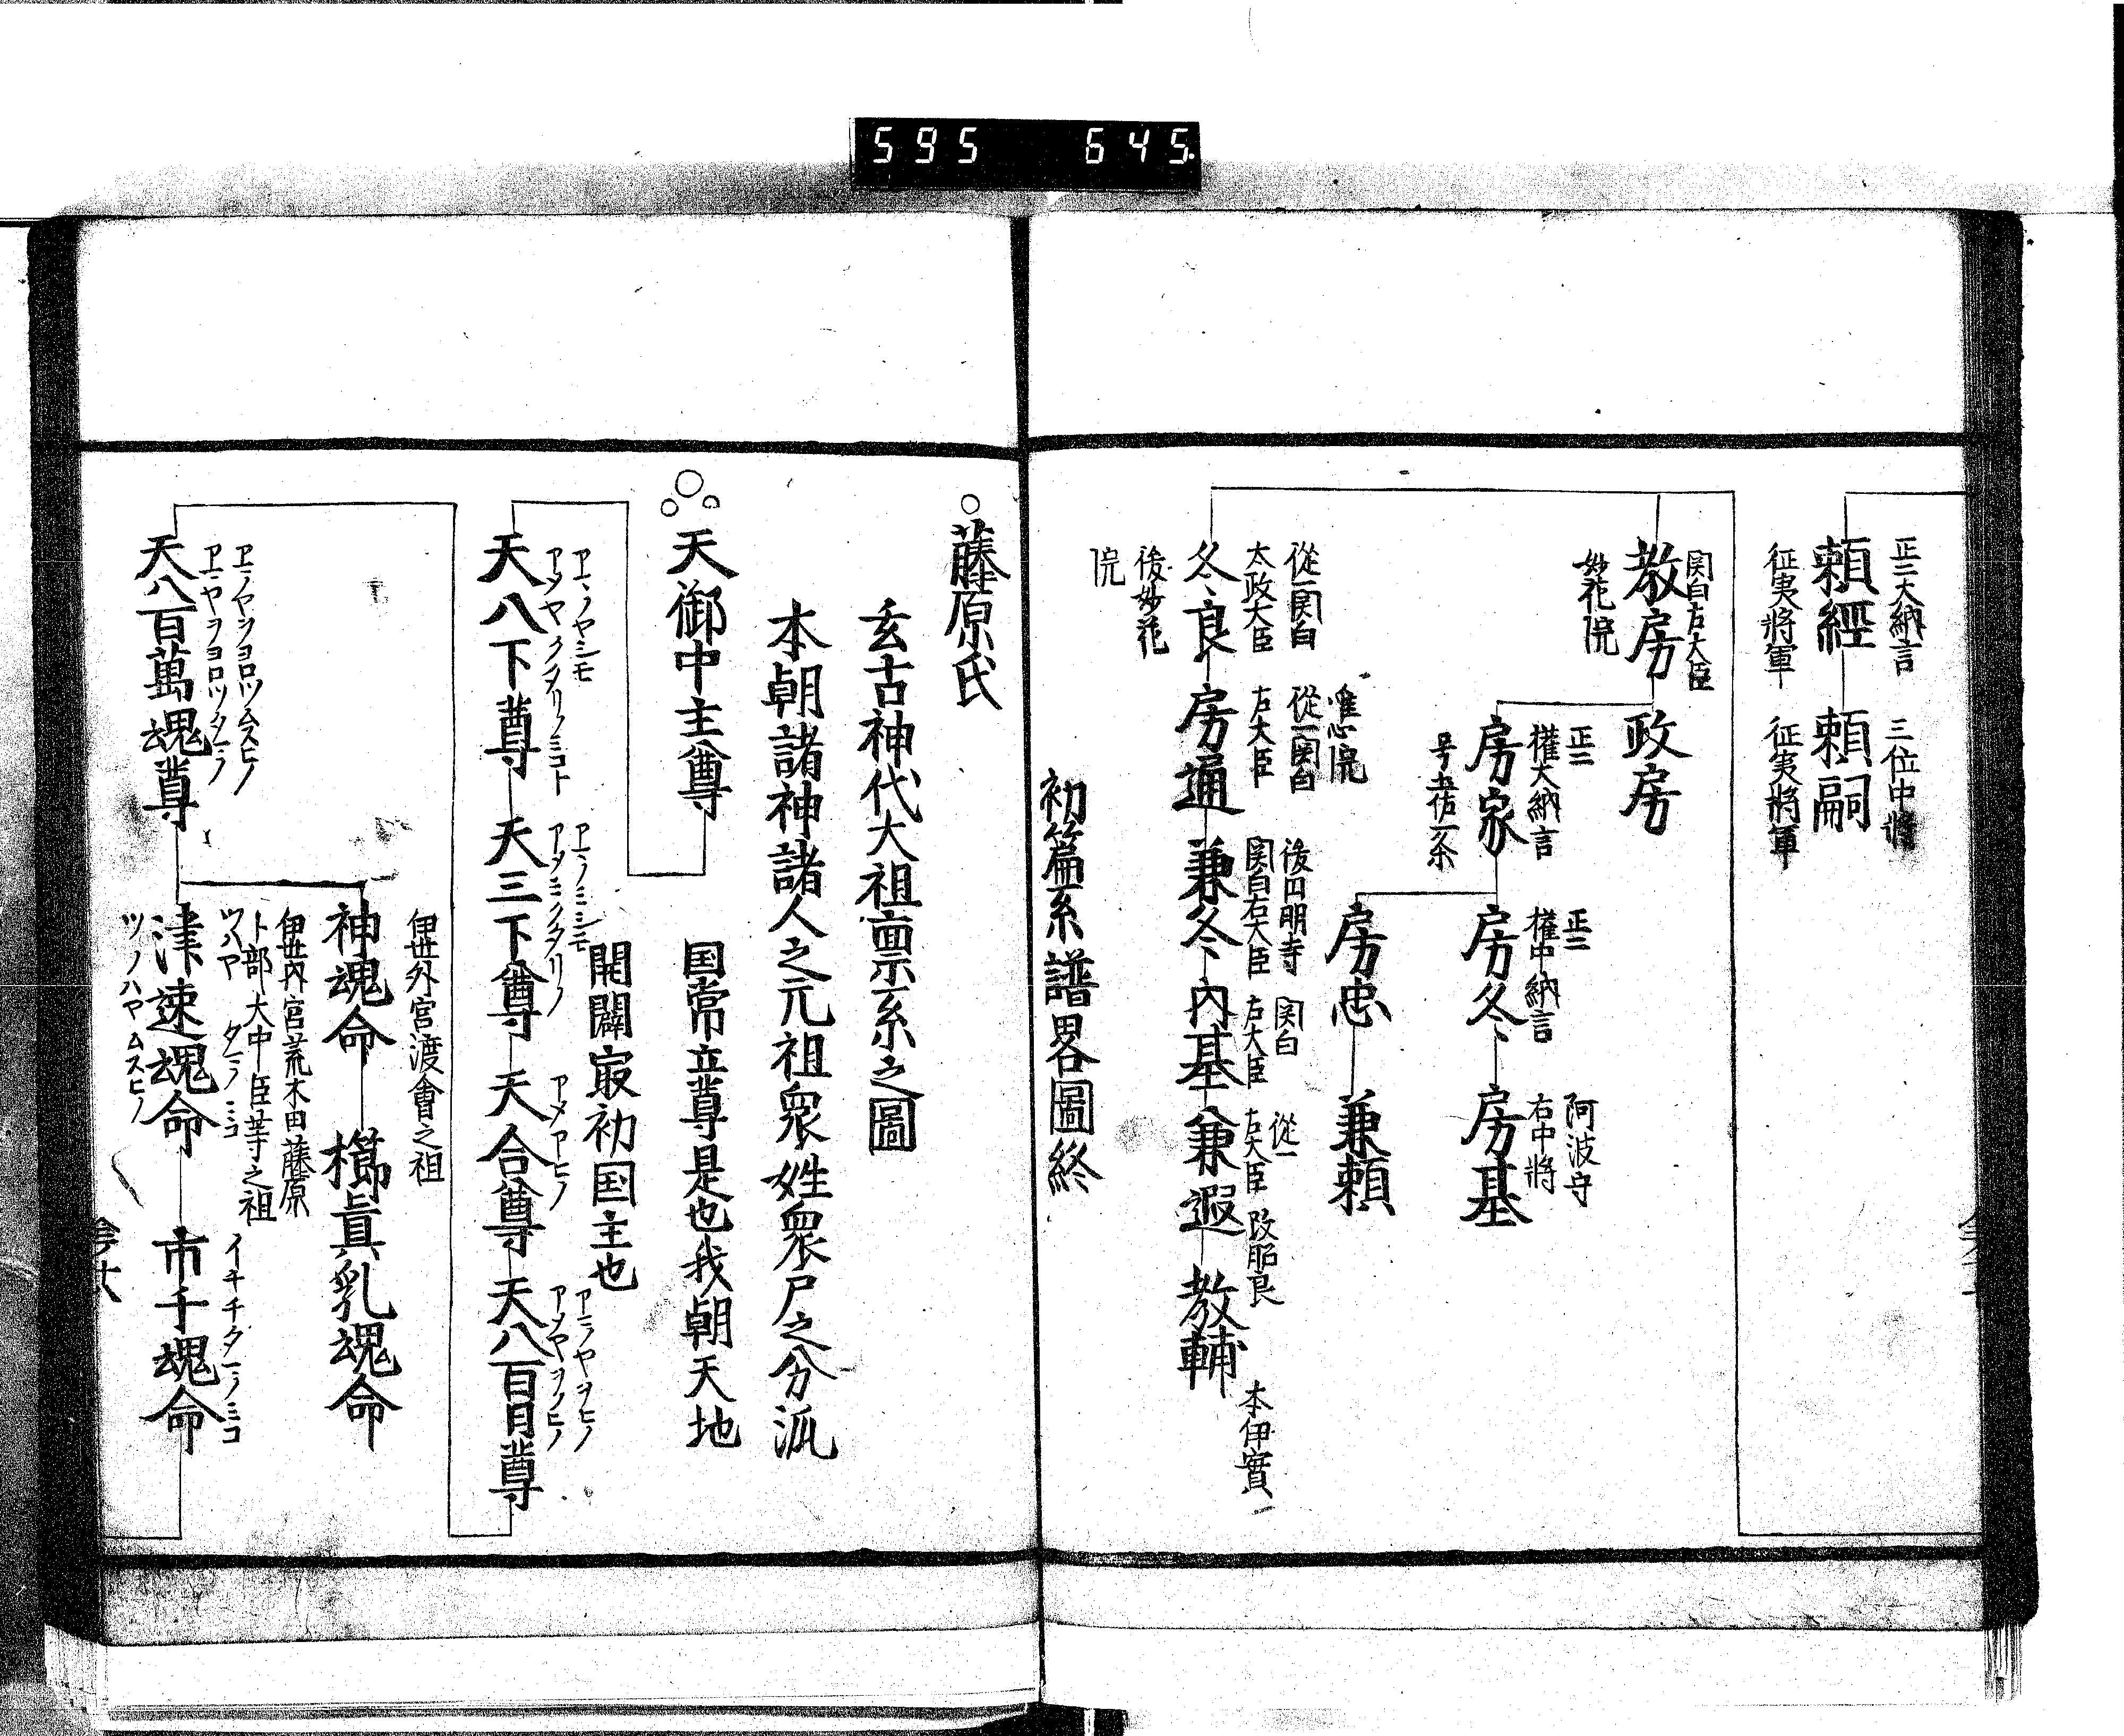 595 645
正二大納言
頼經
征夷將軍
三位中將
頼嗣
征夷將軍
関白左大臣
教房
妙花院
政房
正二
權大納言
房家
号土佐一条
正二
權中納言
房冬
阿波守
右中將
房基
房忠
兼頼
從一関白
太政大臣
冬良
後妙花
院
唯心院
從一関白
左大臣
房通
後円明寺
関白右大臣
兼冬
関白
左大臣
内基
從一
右大臣
兼遐
改昭良
教輔
本伊實
初篇系譜畧圖終
藤原氏
玄古神代大祖稟系之圖
本朝諸神諸人之元祖衆姓衆尸之分派
天御中主尊
国常立尊是也我朝天地
開闢寂初国主也
アマノヤシモ
天八下尊
アメヤクタリノミコト
アマノミシモ
天三下尊
アメミクタリノ
天合尊
アメアヒノ
アマノヤヲヒノ
天八百日尊
アメヤヲカヒノ
アマノヤヲヨロツムスヒノ
アマヤヲヨロツタマノ
天八百萬魂尊
伊世外宮渡會之祖
神魂命
櫛眞乳魂命
伊世内宮荒木田藤原
卜部大中臣等之祖
ツハヤ タマノミコ
津速魂命
ツノハヤムスヒノ
イチチタマノミコ
市千魂命